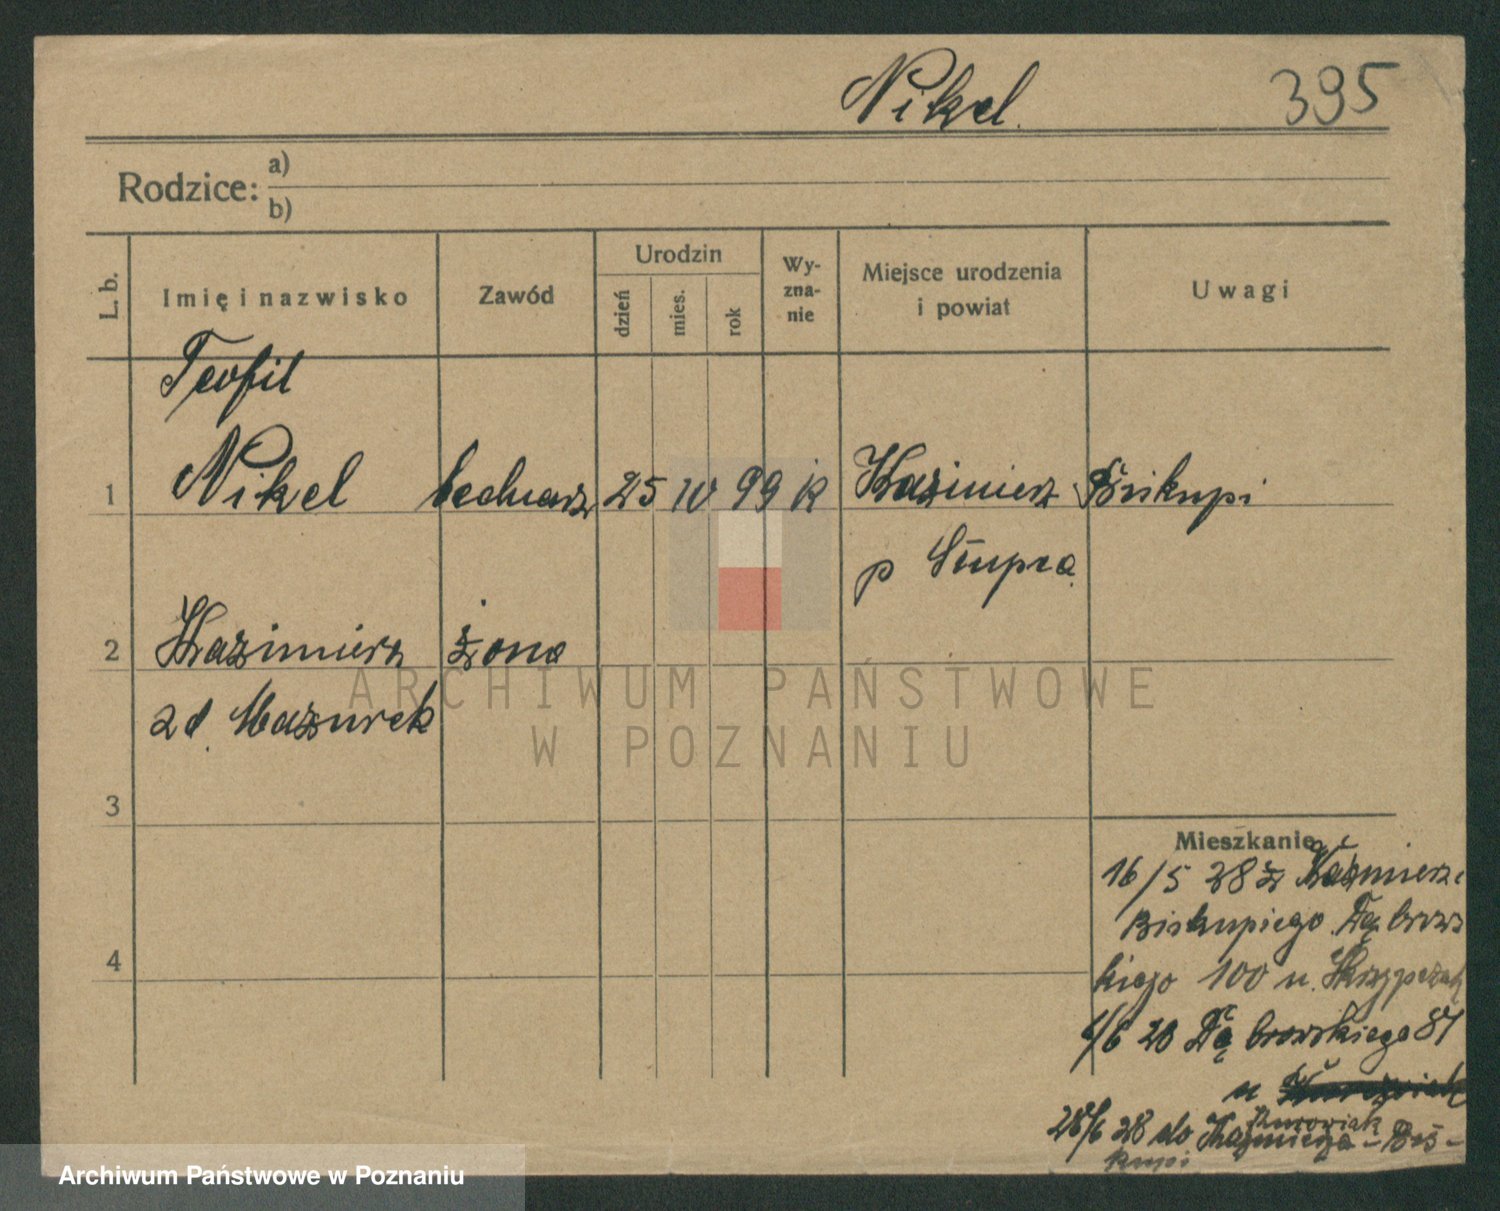 Nikel. 395
Rodzice: a)
b)
L. b. Imię i nazwisko Zawód Urodzin dzień mies. rok Wy-zna-nie Miejsce urodzenia i powiat Uwagi
Teofil
1 Nikel bednarz 25 IV 99 k Kazimierz Biskupi
p Słupca
2 Kazimierz żona
zd. Mazurek
3
4
Mieszkanie
16/5 28 z Kazmierza
Biskupiego Dąbrows
kiego 100 u.
6/6 28 Dąbrowskiego 87
u
Kurowiak
28/6 28 do Kazmierza - Bis-
kupi
ARCHIWUM PAŃSTWOWE
W POZNANIU
Archiwum Państwowe w Poznaniu